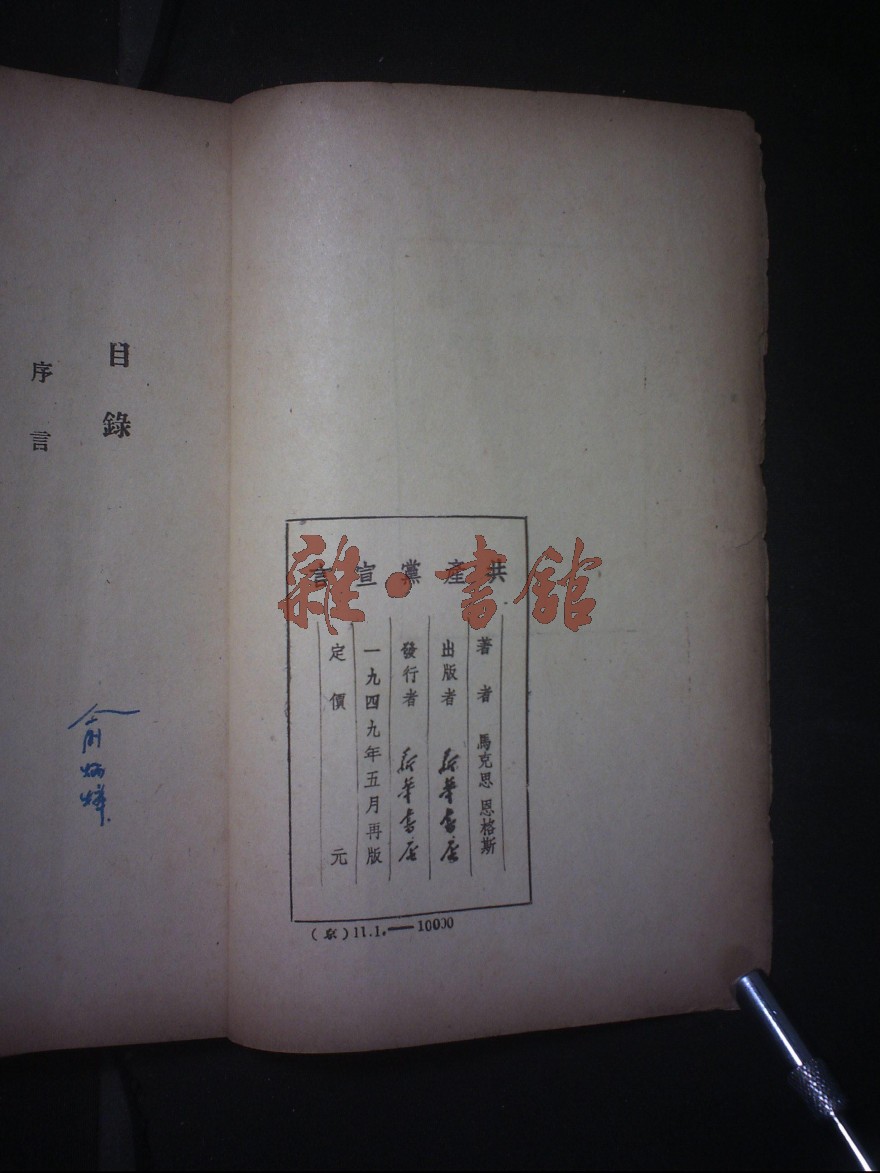 共產黨宣言
著者 馬克思 恩格斯
出版者 新華書店
發行者 新華書店
一九四九年五月再版
定價 元
(京)11.1.—10000
雜·書館
目錄
序言
俞炳輝